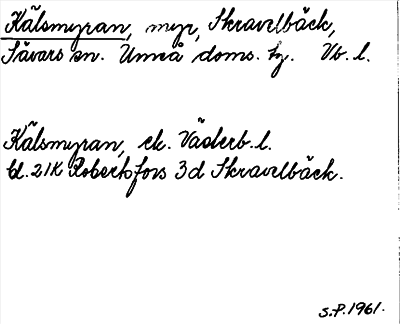 Kälsmyran, myr, Skravelbäck,
Sävars sn. Umeå doms. hg. Vb. l.
Kälsmyran, ek. Västerb. l.
bl. 21K Robertsfors 3d Skravelbäck.
S.P. 1961.